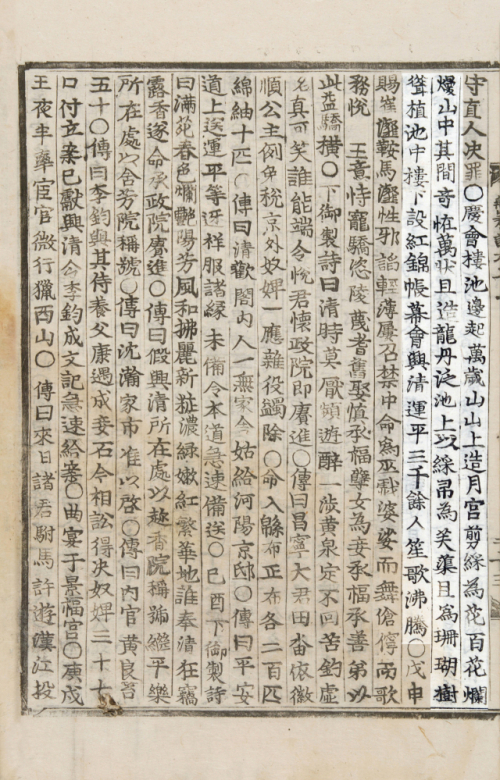 守直人決罪○慶會樓池邊起萬歲山山上造月宮剪綵為花百花爛
熳山中其間奇恠萬狀且造龍舟泛池上以綵帛為芙蕖且為珊瑚樹
聳植池中樓下設紅錦帳幕會興清運平三千餘人笙歌沸騰○戊申
賜崔灐鞍馬灐性邪諂輕薄屢召禁中命為巫戟婆娑而舞傖儜而歌
務悅 王意恃寵驕悠陵蔑耆舊娶慎承福孽女為妾承福承善弟以
此益驕橫○下御製詩曰清時莫厭領遊醉一涉黃泉定不回苦釣虛
名真可笑誰能端合悅君懷政院即賡進○傳曰昌寧大君田畓依徽
順公主例免稅京外奴婢一應雜役蠲除○命入緜布正布各二百匹
綿紬十匹○傳曰清歡閣內人一無家令姑給河陽京邸○傳曰平安
道上送運平等迓祥服諸緣未備令本道急速備送○己酉下御製詩
曰滿苑春色爛艷陽芳風和拂麗新粧濃綠嫩紅繁華地誰奏清狂竊
露香遂命承政院賡進○傳曰假興清所在處以趁香院稱號繼平樂
所在處以含芳院稱號○傳曰沈瀚家市准以啓○傳曰內官黃良苔
五十○傳曰李鈞與其侍養父康遇成妾石今相訟得決奴婢三十七
口付立案已獻興清令李鈞成文記急速給妾○曲宴于景福宮○庚戌
王夜半率宦官微行獵西山○傳曰來日諸君駙馬許遊漢江投